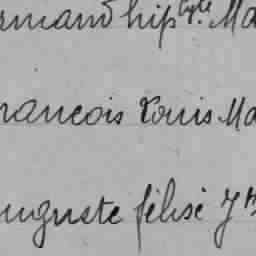 rmand hip^lyte Ma
rancois Louis Ma
uguste félisé J^h